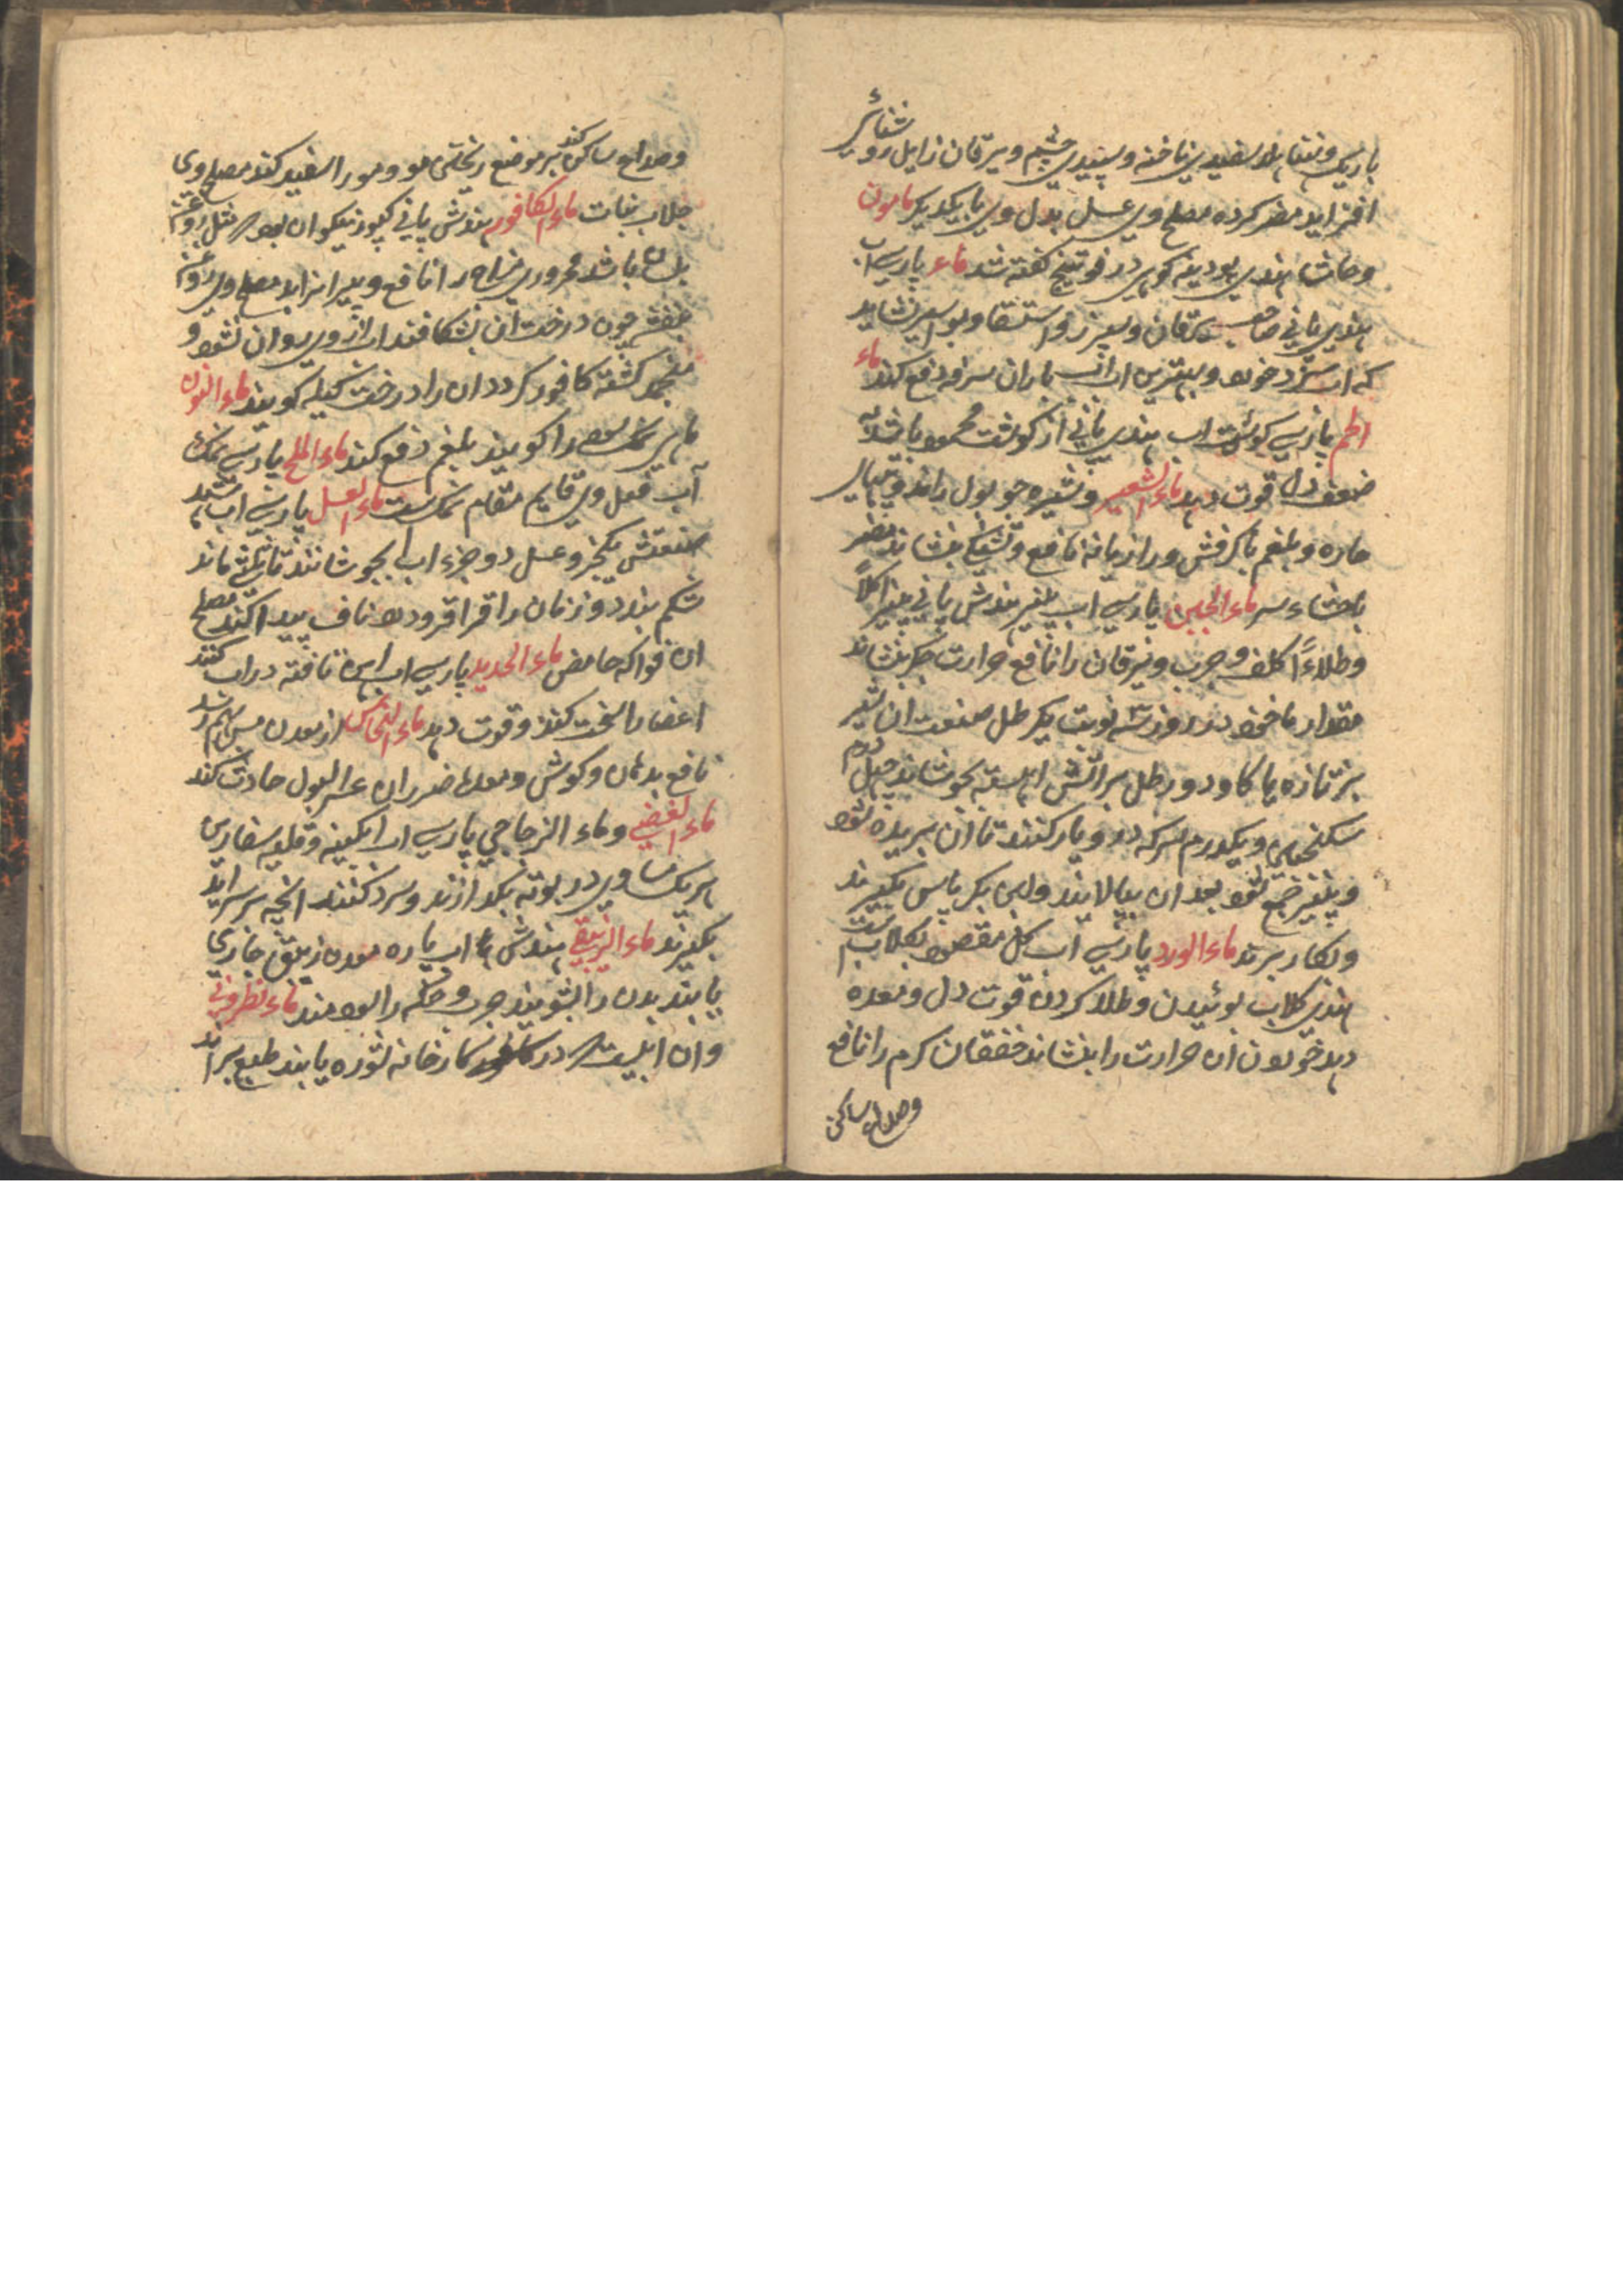 باریک و نتفا بلا سفیدی ناخنه و سپیدی چشم و یرقان زایل رو شفائر
افزاید مضر کرده مصلح وی عسل بدل وی با یکدیکر مامون
و حاشا هندی پودینه کوهی در فوتنج کفته شد ماء پارسی آب
هندی پانی صاحب یرقان و سپرز و استسقا و بواسیر نشاید
که آب سرد خورد و بهترین آب آب باران سرفه دفع کند ماء
الحم پارسی کوشت آب هندی پانی از کوشت محمود باشد به
ضعف دل قوت دهد ماء الشعیر و شیره جو بول راند و تبهای
حاره و بلغم با کرفش و رازیانه نافع و تشنکی بنشاند مضر
باحشاء سر ماء الجبن پارسی آب پنیر هندش پانی پنیر اکلاً
و طلاءً کلف و جرب و یرقان را نافع حرارت جکر بنشاند
مقدار ماخوذ در روز سه نوبت یکرطل صنعت آن شیر
بز تازه یا کاو دو رطل بر آتش آهسته بجوشاند چهل درم
سکنجبین و یکدرم سرکه در و یار کنند تا آن بریده شود
و پنیر جمع شود بعد آن بپالایند و این بکرپاس بگیرند
و بکار برند ماء الورد پارسی آب کل مقصود بکلابست
هندی کلاب بوئیدن و طلا کردن قوت دل و معده
دهد خوردن آن حرارت را بنشاند خفقان کرم را نافع
و صداع ساکن
و صداع ساکن کند بر موضع ریختی مو و مو را سفید کند مصلح وی
جلاب نبات ماء الکافور هندش پانی کپور نیکو آن بود مثل روغن
بلسان باشد محروری مزاج را نافع و پیر انزاید مصلح وی روغن
بنفشه چون درخت آن بشکافند آب از وی روان شود و
منجمد کشته کافور کردد آن را درخت کیله کویند ماء النون
ماهی نمک سود را کویند بلغم دفع کند ماء الملح پارسی نمک
آب فعل وی قایم مقام نمکست ماء العسل پارسی آب شهد
صنعتش یکجزو عسل دو جزء آب بجوشانند تا ثلثی ماند
شکم بندد و زنان را قراقر و درد ناف پیدا کند مصلح
آن فواکه حامض ماء الحدید پارسی آب آهن تافته در آب کنند
اعضا را سخت کند و قوت دهد ماء النحاس از معدن مس بهم رسد
نافع بدهان و کوش و معده ضرر آن عسر البول حادث کند
ماء الفضی و ماء الزجاجی پارسی آب آبکینه و قلعیه سفارین
هر یک مساوی در بوته بکدازند و سرد کنند آنچه بر سر آید
بکیرند ماء الزیبقی هندش آب پاره معدن زیبق جاری
یابند بدن را بشویند جرب و حکه را سود مند ماء نطرونی
و آن آبیست در نمکزار خانه شوره یابند طبع براند